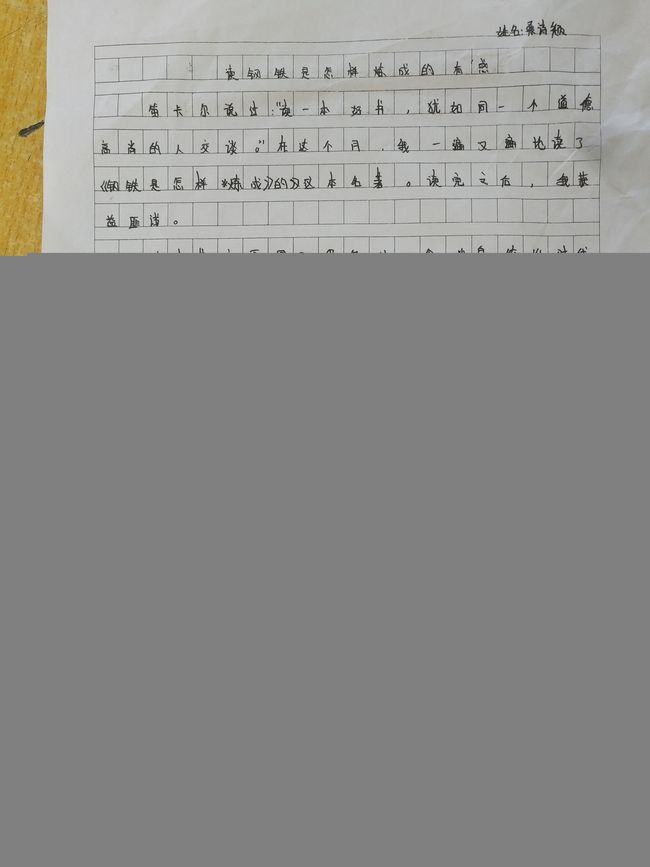 姓名:桑诗颖
读钢铁是怎样炼成的 有感
笛卡尔说过:"读一本好书,犹如同一个道德
高尚的人交谈。"在这个月,我一遍又遍地读了
《钢铁是怎样炼成》的》这本名著。读完之后,我获
益匪浅。